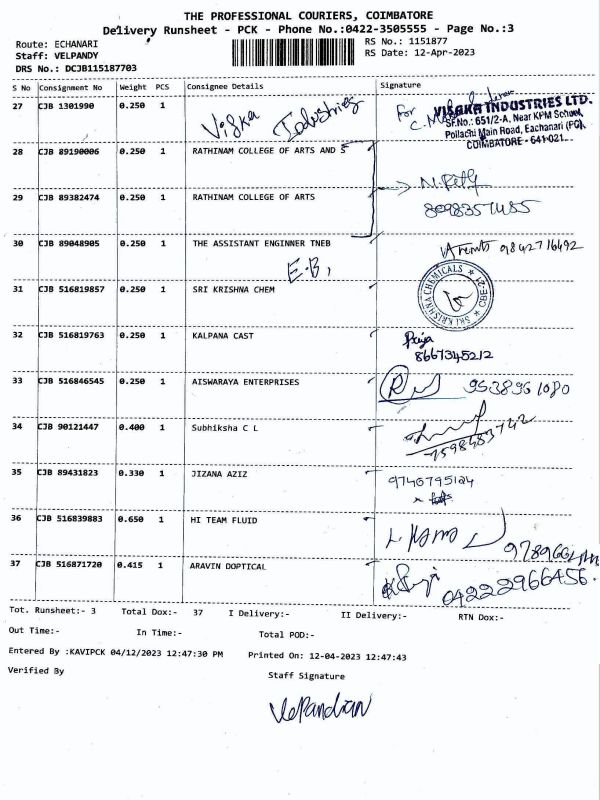 THE PROFESSIONAL COURIERS, COIMBATORE
Delivery Runsheet - PCK - Phone No.:0422-3505555 - Page No.:3
Route: ECHANARI
RS No.: 1151877
Staff: VELPANDY
RS Date: 12-Apr-2023
DRS No.: DCJB115187703
S No Consignment No Weight PCS Consignee Details Signature
27 CJB 1301990 0.250 1 Viska Industries For
VISAKA INDUSTRIES LTD.
SF.No.: 651/2-A, Near KPM School,
Pollachi Main Road, Eachanari (PO),
COIMBATORE - 641 021.
28 CJB 89190006 0.250 1 RATHINAM COLLEGE OF ARTS AND S
29 CJB 89382474 0.250 1 RATHINAM COLLEGE OF ARTS
8098357485
30 CJB 89048905 0.250 1 THE ASSISTANT ENGINNER TNEB 9842716492
E.B,
31 CJB 516819857 0.250 1 SRI KRISHNA CHEM
SRI KRISHNA CHEMICALS * CBE-21 *
32 CJB 516819763 0.250 1 KALPANA CAST Priya
8667345212
33 CJB 516846545 0.250 1 AISWARAYA ENTERPRISES 9538961080
34 CJB 90121447 0.400 1 Subhiksha C L
7598483742
35 CJB 89431823 0.330 1 JIZANA AZIZ 9746795124
36 CJB 516839883 0.650 1 HI TEAM FLUID
37 CJB 516871720 0.415 1 ARAVIN DOPTICAL 04222966456.
Tot. Runsheet:- 3 Total Dox:- 37 I Delivery:- II Delivery:- RTN Dox:-
Out Time:- In Time:- Total POD:-
Entered By :KAVIPCK 04/12/2023 12:47:30 PM Printed On: 12-04-2023 12:47:43
Verified By Staff Signature
VelPandian